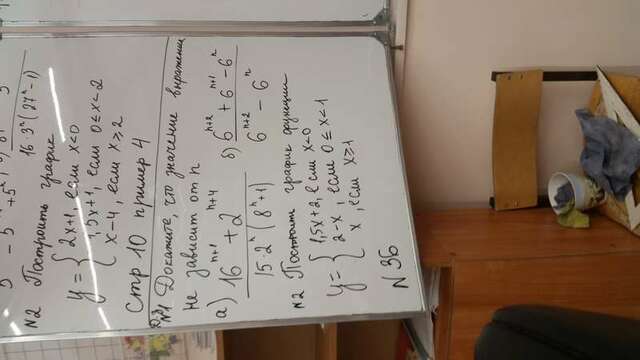 5 - 5 + 5
16·3ⁿ(27ⁿ-1)
N2 Построить график
y = { 2x+1, если x<0
,5x+1, если 0≤x<2
x-4, если x≥2
Стр 10 пример 4
N1 Докажите, что значение выражения
не зависит от n
а) 16ⁿ⁺¹ + 2ⁿ⁺⁴ / 15·2ⁿ(8ⁿ+1) б) 6ⁿ⁺² + 6ⁿ⁺¹ - 6ⁿ / 6ⁿ⁺² - 6ⁿ
N2 Построить график функции
y = { 1,5x+2, если x<0
2-x, если 0≤x<1
x, если x≥1
N 36